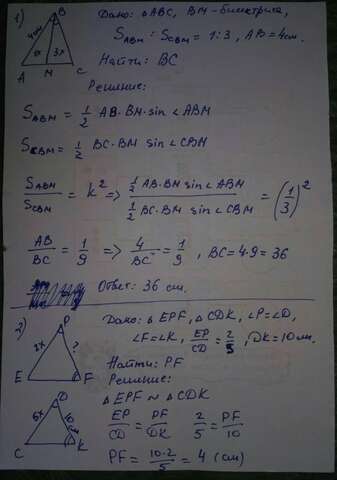 1) Дано: △ABC, BM - биссектриса,
S ABM : S CBM = 1:3, AB = 4см.
Найти: BC
B
4см
x 3x
A M C
Решение:
S ABM = 1/2 AB·BM·sin∠ABM
S CBM = 1/2 BC·BM sin∠CBM
S ABM / S CBM = k² => (1/2 AB·BM sin∠ABM) / (1/2 BC·BM sin∠CBM) = (1/3)²
AB/BC = 1/9 => 4/BC = 1/9, BC = 4·9 = 36
Ответ: 36 см.
2) Дано: △EPF, △CDK, ∠P=∠D,
∠F=∠K, EP/CD = 2/5, DK = 10см.
Найти: PF
P
2x ?
E F
Решение:
△EPF ~ △CDK
EP/CD = PF/DK 2/5 = PF/10
PF = 10·2/5 = 4 (см)
D
10
C K